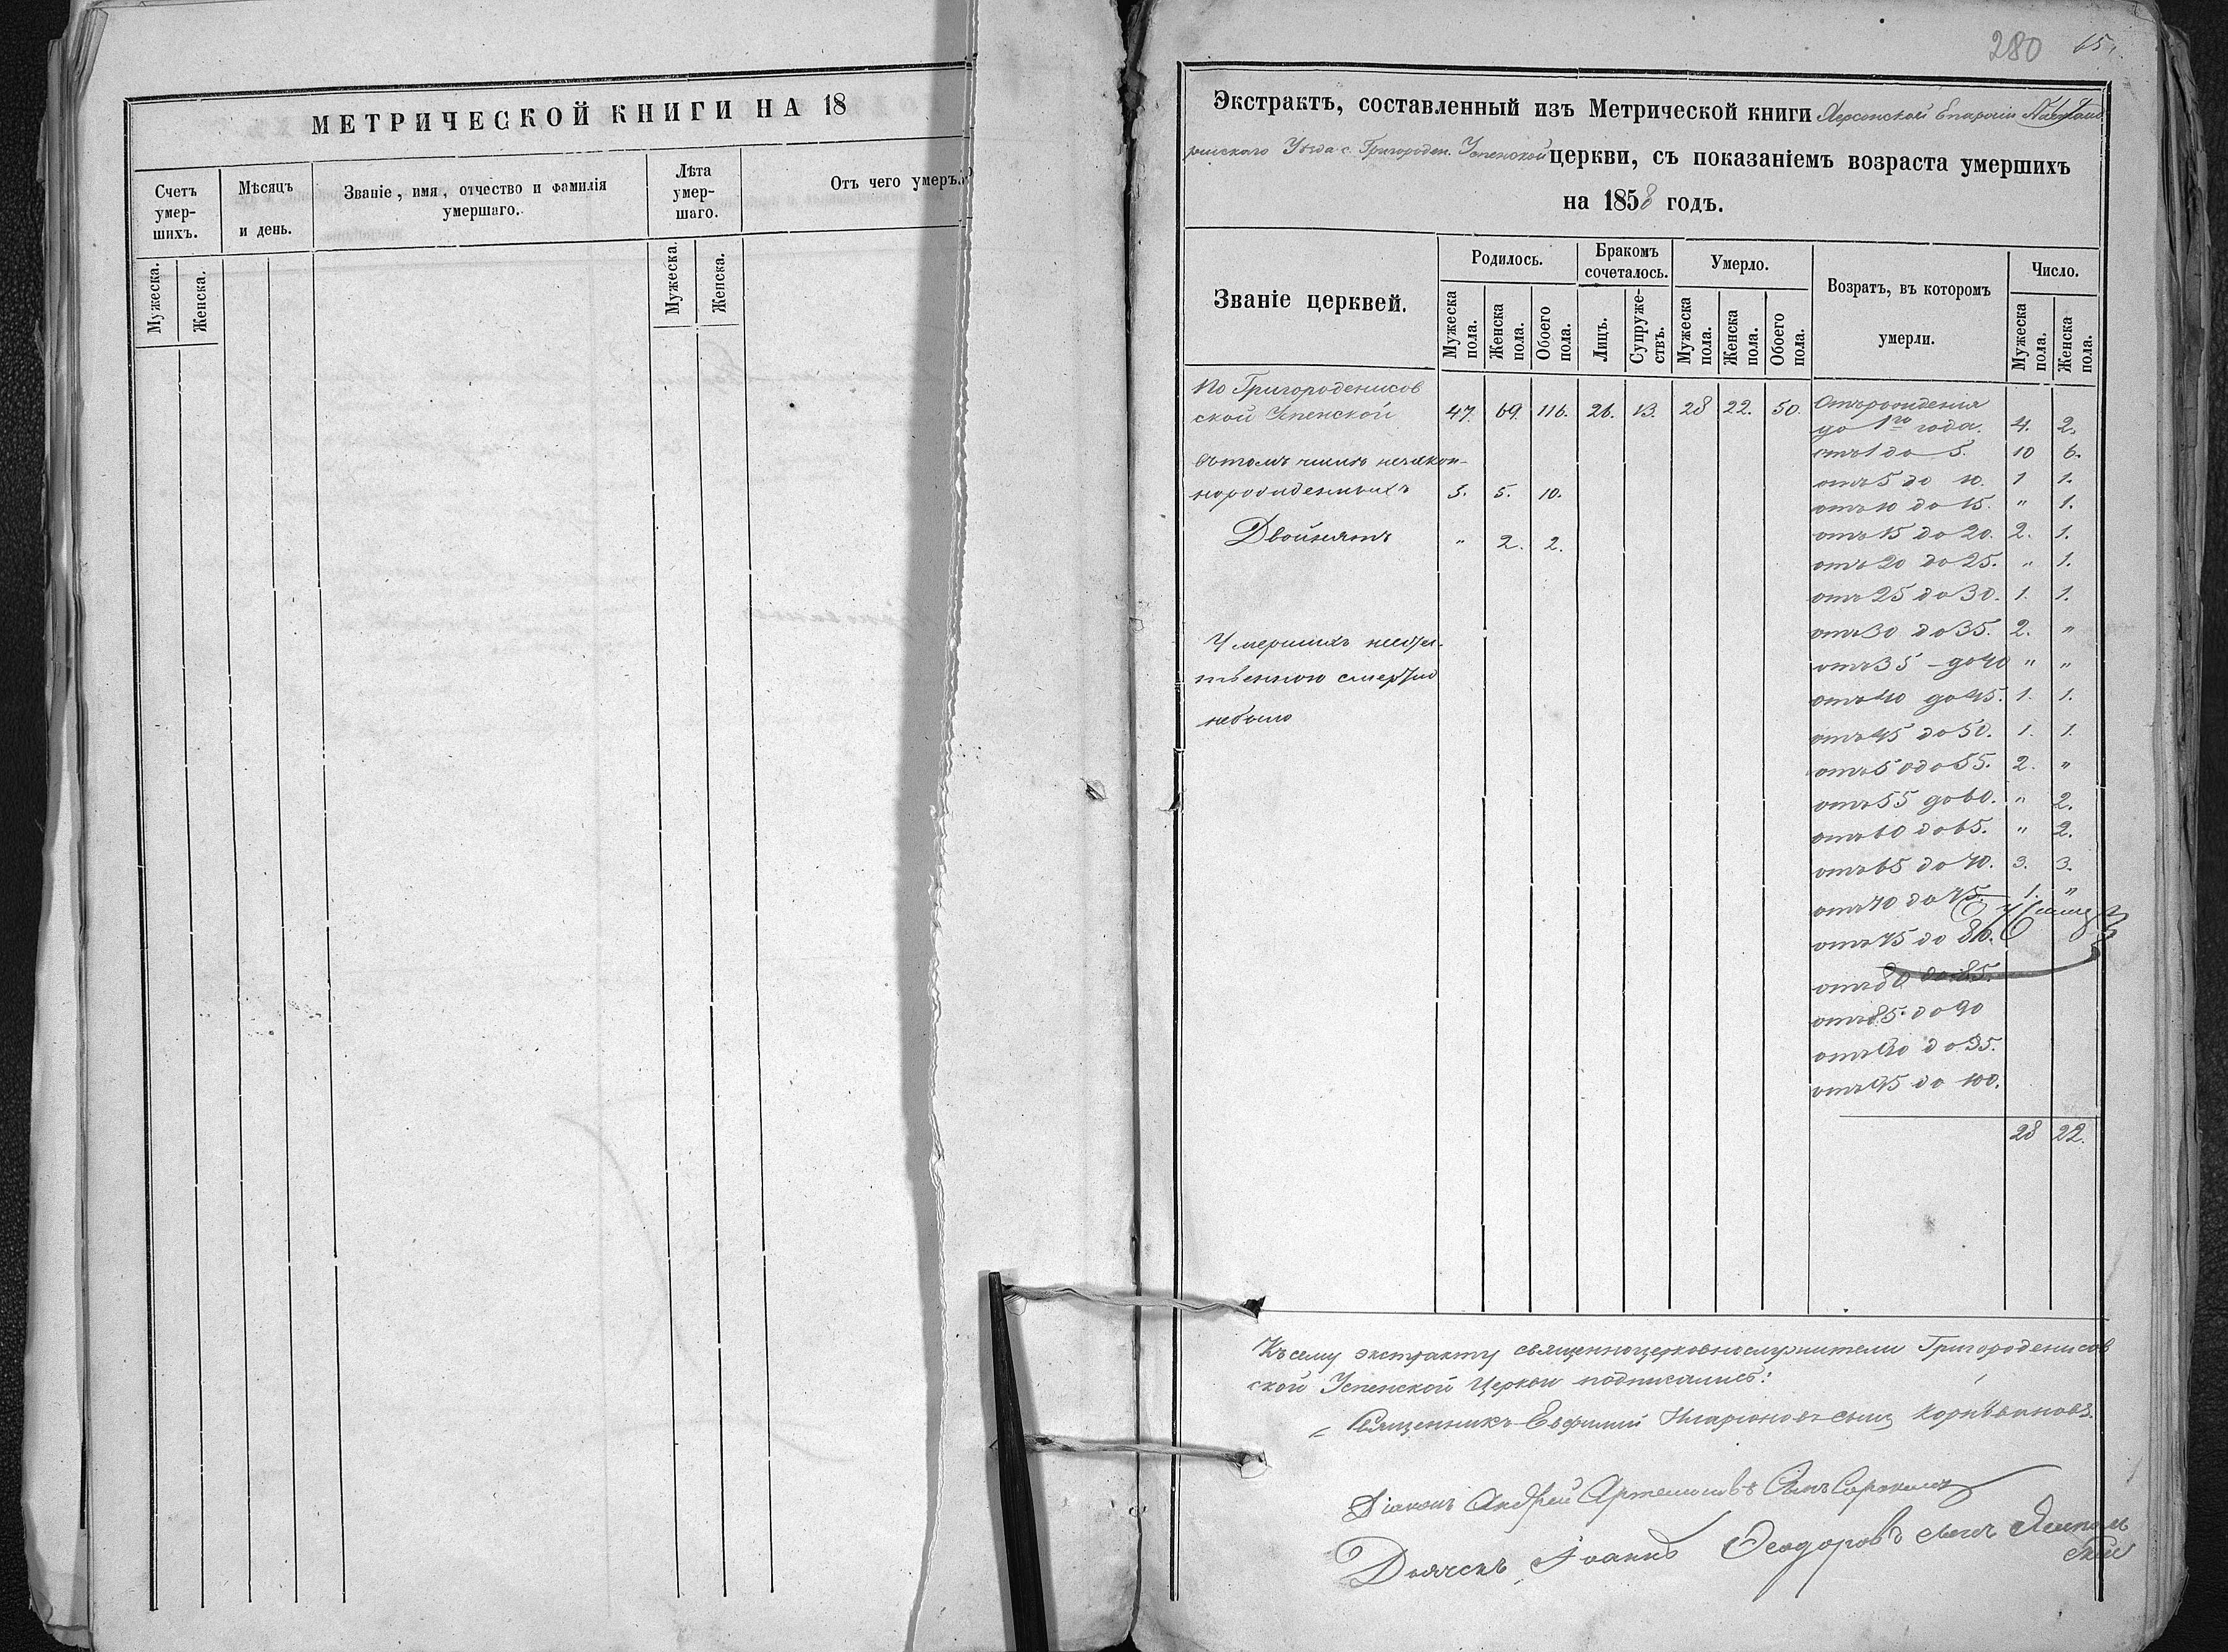 МЕТРИЧЕСКОЙ КНИГИ НА 18
Счетъ умер-шихъ.
Мѣсяцъ и день.
Званіе, имя, отчество и фамилія умершаго.
Лѣта умер-шаго.
Отъ чего умеръ.
Мужеска.
Женска.
Мужеска
Женска.
280 65.
Экстрактъ, составленный изъ Метрической книги Херсонской Епархіи
Уѣзда с. Григороден. Успенской церкви, съ показаніемъ возраста умершихъ
на 1858 годъ.
Званіе церквей.
Родилось.
Бракомъ сочеталось.
Умерло.
Возратъ, въ которомъ умерли.
Число.
Мужеска пола.
Женска пола.
Обоего пола.
Лицъ.
Супруже-ствъ.
Мужеска пола.
Женска пола.
Обоего пола.
Мужеска пола.
Женска пола.
По Григороденисов
ской Успенской 47. 69. 116. 26. 13. 28 22. 50.
въ томъ числѣ незакон-
норожденныхъ 5. 5. 10.
Двойнятъ " 2. 2.
Умершихъ неестес-
твенною смертію
небыло
Отъ рожденія
до 1го года. 4. 2.
отъ 1 до 5. 10 6.
отъ 5 до 10. 1 1.
отъ 10 до 15. " 1.
отъ 15 до 20. 2. 1.
отъ 20 до 25. " 1.
отъ 25 до 30. 1. 1.
отъ 30 до 35. 2. "
отъ 35 - до 40 " "
отъ 40 до 45. 1. 1.
отъ 45 до 50. 1. 1.
отъ 50 до 55. 2. "
отъ 55 до 60. " 2.
отъ 60 до 65. " 2.
отъ 65 до 70. 3. 3.
отъ 70 до 75. 1. "
отъ 75 до 80.
отъ 80 до 85.
отъ 85 до 90
отъ 90 до 95.
отъ 95 до 100.
28 22.
Къ сему экстракту священноцерковнослужители Григороденисов
ской Успенской Церкви подписались:
Священникъ Евфимій Иларіоновъ сынъ
Діаконъ Андрей Артемовъ Сынъ
Дьячекъ Іоаннъ Феодоровъ сынъ